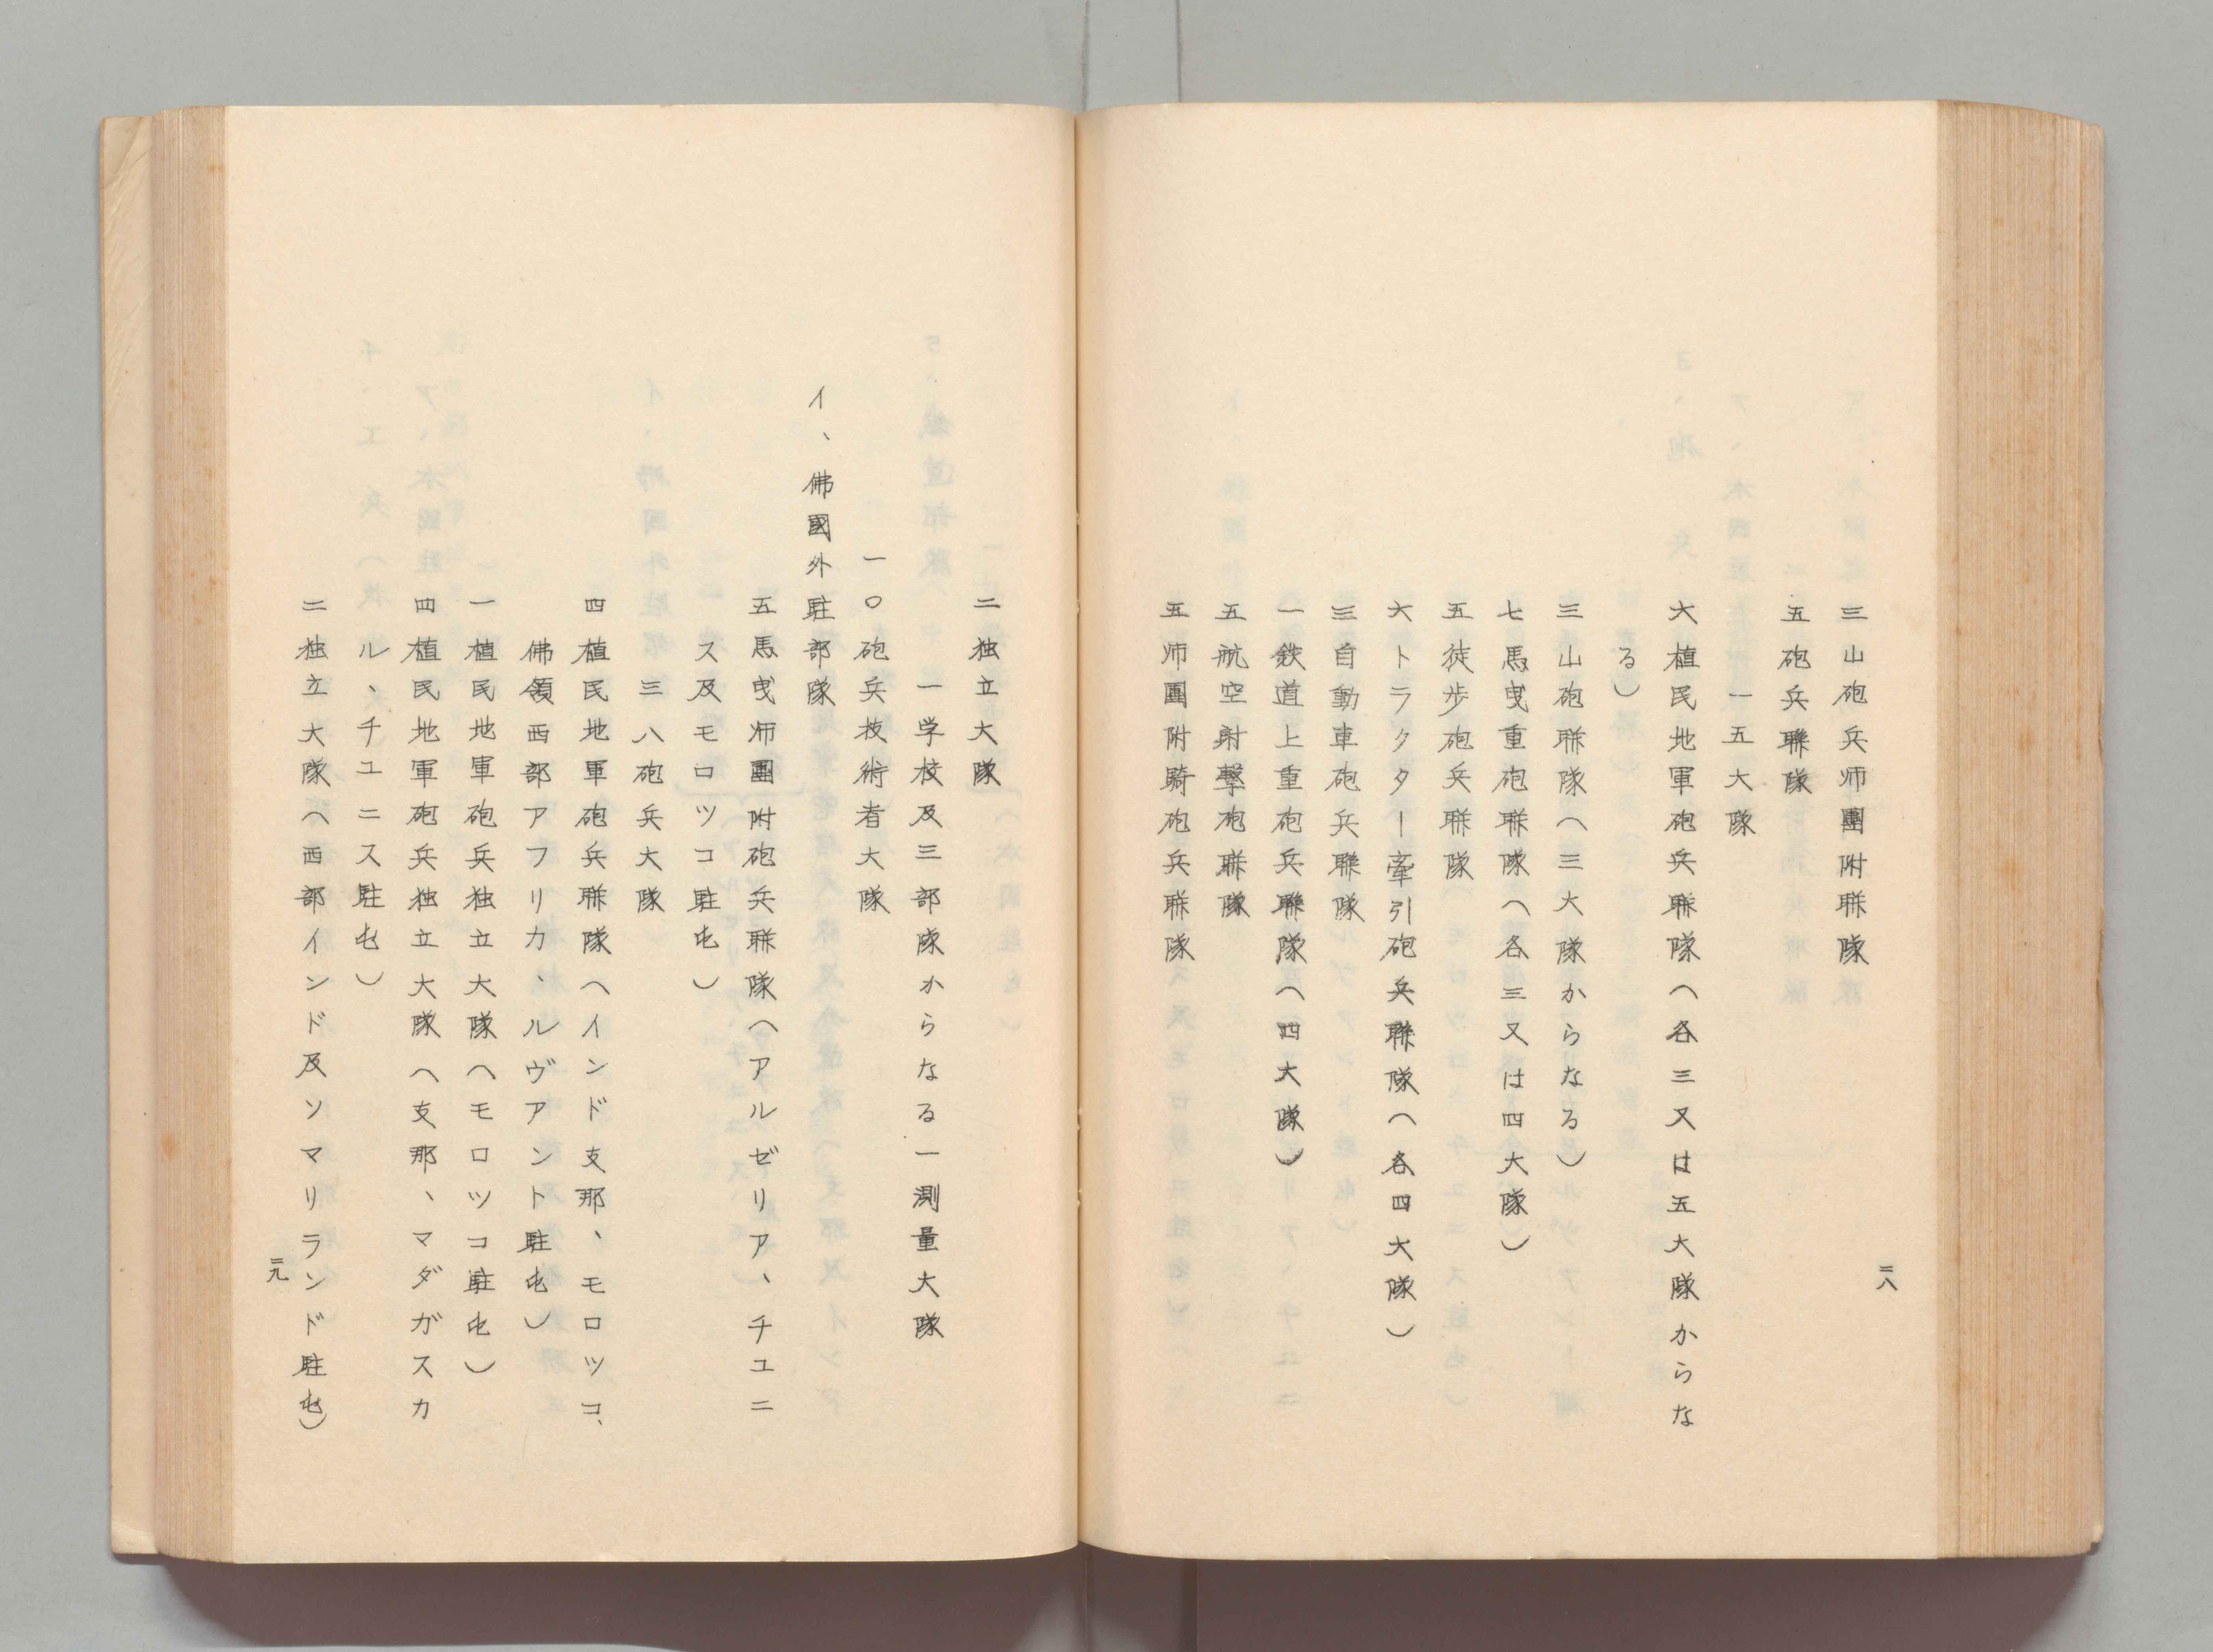 二八
三山砲兵师團附聯隊
五砲兵聯隊
一五大隊
六植民地軍砲兵聯隊(各三又は五大隊からな
る)
三山砲聯隊(三大隊からなる)
七馬曳重砲聯隊(各三又は四大隊)
五徒歩砲兵聯隊
六トラクター牽引砲兵聯隊(各四大隊)
三自動車砲兵聯隊
一鉄道上重砲兵聯隊(四大隊)
五航空射撃砲聯隊
五师團附騎砲兵聯隊
二独立大隊
一学校及三部隊からなる一測量大隊
一〇砲兵技術者大隊
イ、佛國外駐部隊
五馬曳师團附砲兵聯隊(アルゼリア、チユニ
ス及モロツコ駐屯)
三八砲兵大隊
四植民地軍砲兵聯隊(インド支那、モロツコ、
佛領西部アフリカ、ルヴアント駐屯)
一植民地軍砲兵独立大隊(モロツコ駐屯)
四植民地軍砲兵独立大隊(支那、マダガスカ
ル、チユニス駐屯)
二独立大隊(西部インド及ソマリランド駐屯)
二九